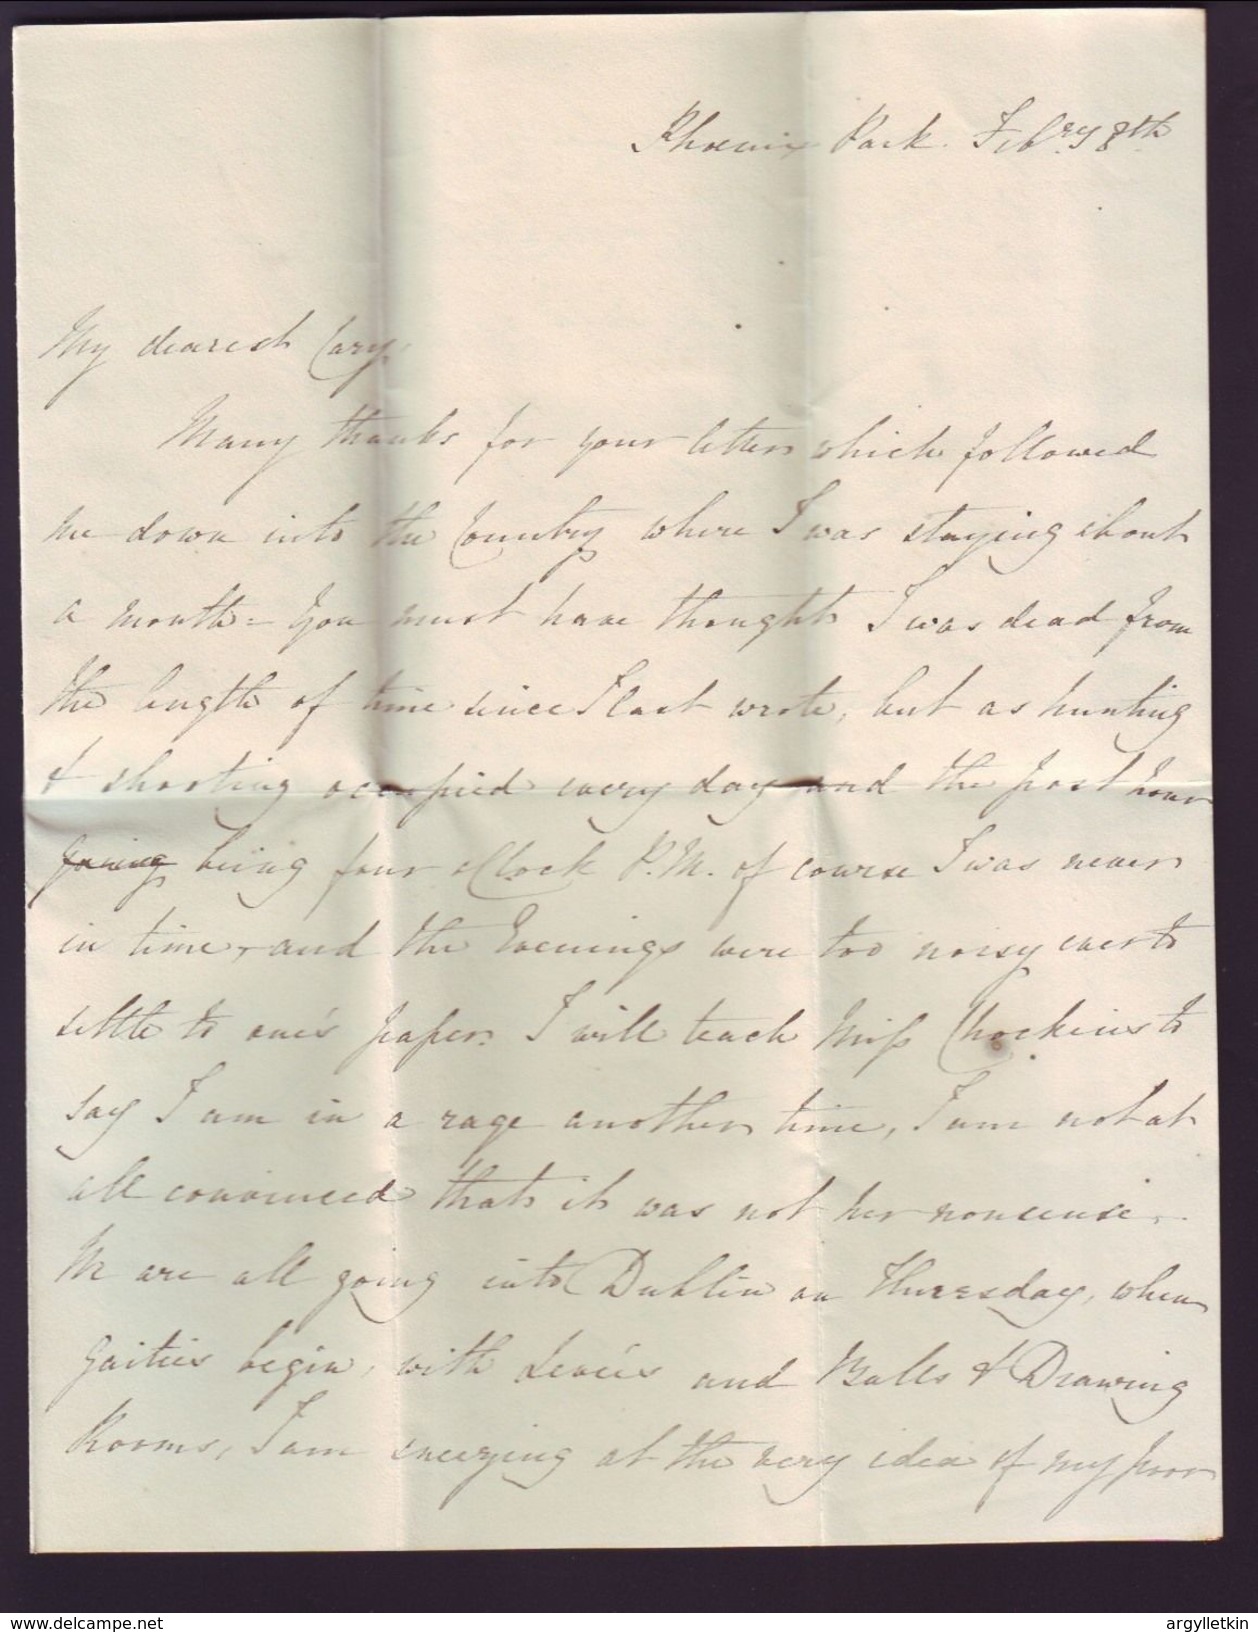 Phoenix Park. Feb.ry 8th
My dearest Cary,
Many thanks for your letter which followed
me down into the Country where I was staying about
a month = You must have thought I was dead from
the length of time since I last wrote, but as hunting
& shooting occupied every day and the post hour
going being four oClock P.M. of course I was never
in time, and the Evenings were too noisy ever to
settle to one's paper. I will teach Miss Chockins to
say I am in a rage another time, I am not at
all convinced that it was not her nonsense.
We are all going into Dublin on Thursday, when
gaities begin, with Levées and Balls & Drawing
Rooms, I am sneezing at the very idea of my poor
delcampe.net
argylletkin